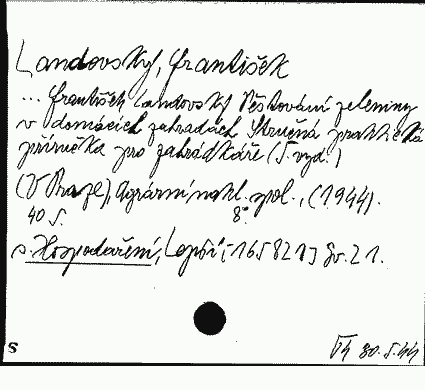 Landovský, František
... František Landovský Pěstování zeleniny
v domácích zahradách Stručná praktická
příručka pro zahrádkáře (I. vyd.)
(V Praze), Agrární nakl. spol., (1944).
40 s. 8°.
s. Hospodaření, Lepší [165821] Sv. 21.
S 30.5.44